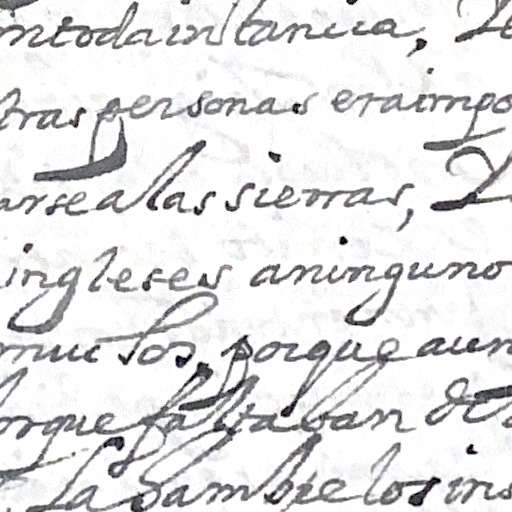 ntodainstancia,
tras personas eraimpo
arsealas sierras,
ingleses aninguno
muchos, porque aun
orque faltaban de
La hambre los ins